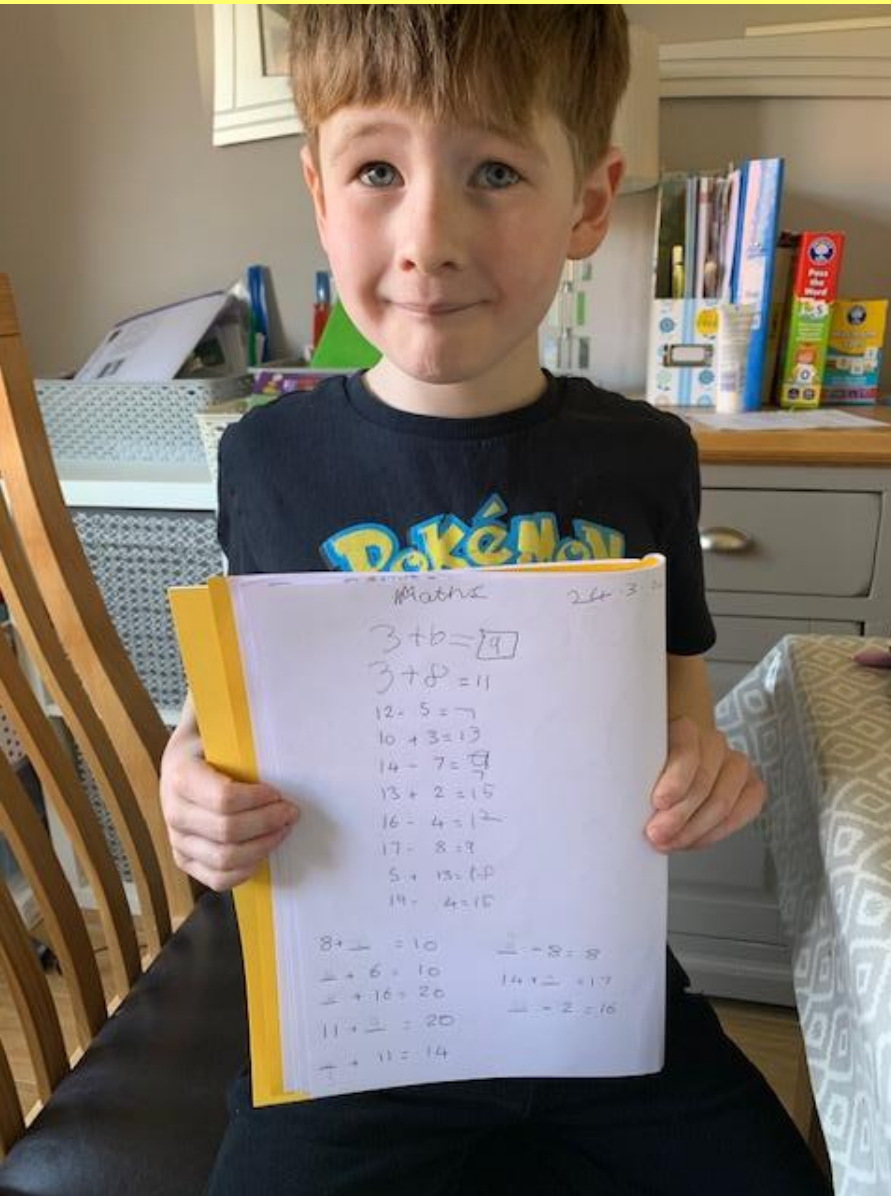 Pass
the
Word
Pokémon
Maths
24 3
3+6=9
3+8=11
12- 5=7
10 +3=13
14- 7=9
7
13+ 2=15
16- 4=12
17- 8=9
5+ 13=18
19- 4=15
8+_ =10
_+ 6= 10
_+16=20
11+_ = 20
_+ 11= 14
_-8=8
14+_ =17
_-2=16